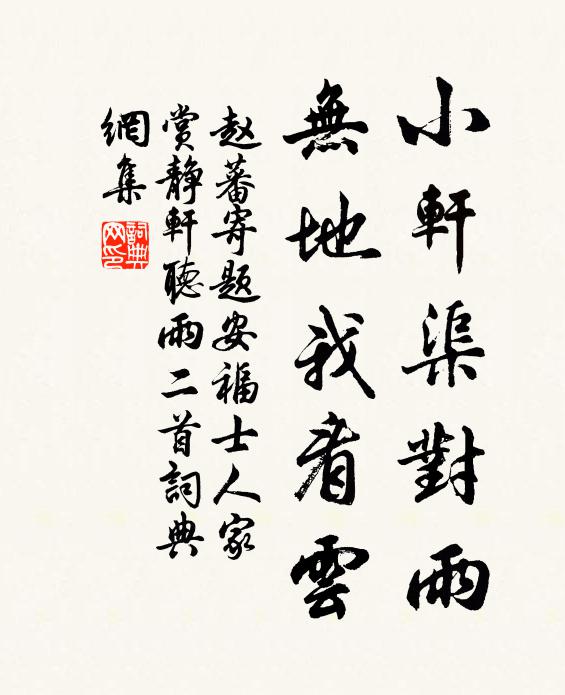 小軒渠對雨
無地我看雲
赵蕃寄題安福士人家
赏静軒聽雨二首詞典
網集
詞典网印